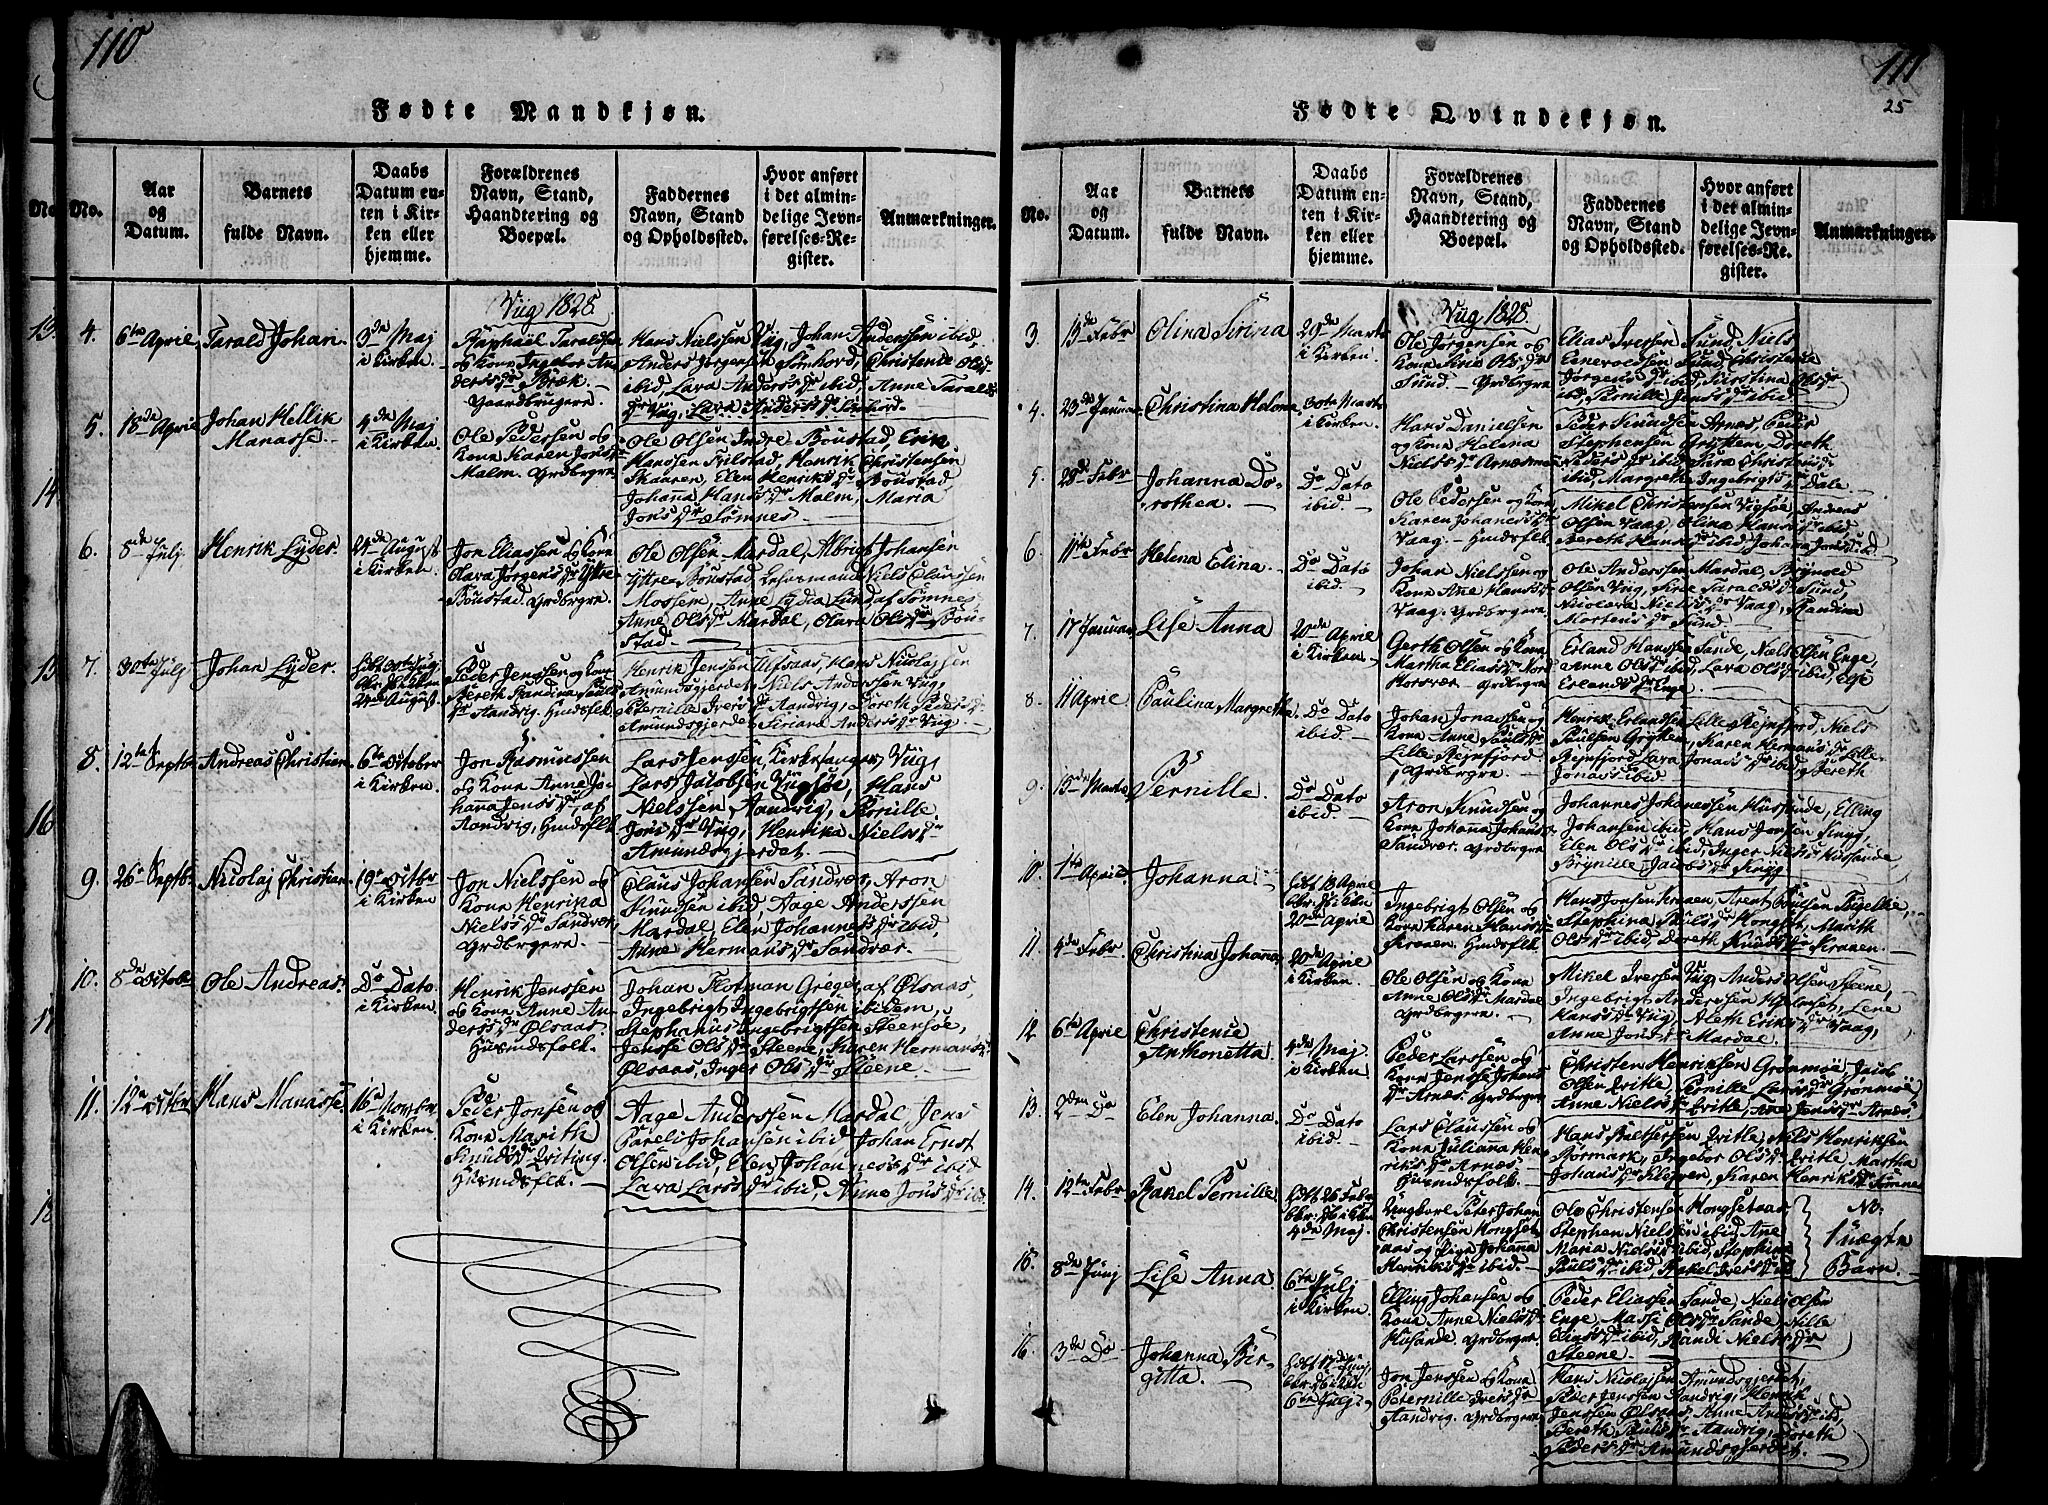 110
Fødte Mandkjøn.
No.
Aar
og
Datum.
Barnets
fulde Navn.
Daabs
Datum en-
ten i Kir-
ken eller
hjemme.
Forældrenes
Navn, Stand,
Haandtering og
Boepæl.
Faddernes
Navn, Stand
og Opholdssted.
Hvor anført
i det almin-
delige Jevn-
førelses-Re-
gister.
Anmærkninger.
Viig 1828
4.
6te April
Tarald Johan.
3de Maj
i Kirken.
Raphael Taraldsen
og Kone Ingebor An-
ders Dr Bræk.
Gaardbrugere.
Hans Nielssen Viig, Johan Anderssen ibid,
Anders Jørgensen Sømhord, Christence Ols Dr
ibid, Lava Anders Dr ibid, Anne Taralds
Dr Viig, Lava Anders Dr Sømhord.
5.
18de April
Johan Hellik
Manasse.
4de Maj
i Kirken
Ole Pederssen og
Kone Karen Jons Dr
Malm. Grdbrgre.
Ole Olsen Indre Boustad, Erik
Hanssen Filstad, Henrik Christensen
Skaaren, Elen Henriks Dr Boustad
Johanna Hans Dr Malm, Maria
Jons Dr Sømnes
6.
5de Julj
Henrik Lyder.
24de August
i Kirken.
Jon Eliassen og Kone
Olava Jørgens Dr Yttre
Boustad. Grdbrgre.
Ole Olsen Mardal, Albrigt Johansen
Yttre Boustad, Lehnsmand Niels Clausen
Mossem, Anne Lydia Lund af Sømnes
Anne Ols Dr Mardal, Olava Ols Dr Bou-
stad.
7.
30te Julj
Johan Lyder.
hbt 30te Julj
24de August.
Peder Jenssen og Kone
Bereth Randina Pauls
Dr Aandvig. Huusflk
Henrik Jensen Ulsaas, Hans Nicolajsen
Amundsgjerdet, Niels Anderssen Viig,
Pernille Ivers Dr Aandvig, Doreth Peders Dr
Amundsgjerdet, Siriana Anders Dr Viig
8.
12te Septbr
Andreas Christian
6te October
i Kirken.
Jon Rasmussen
og Kone Anne Jo-
hana Jens Dr af
Aandvig, Huusflk
Lars Jenssen, Kirkesanger, Viig,
Lars Jacobsen Vigsøe, Hans
Nielssen, Aandvig, Pernille
Jons Dr Viig, Henrika Niels Dr
Amundsgjerdet.
9.
26 Septbr
Nicolaj Christian
19 Octbr
i Kirken
Jon Nielssen og
Kone Henrika
Niels Dr Sandvær.
Grdbrgere
Claus Johansen Sandvær, Aron
Knudsen ibid, Aage Anderssen
Mardal, Elen Johannes Dr ibid,
Anne Hermans Dr Sandvær.
10.
5de October
Ole Andreas.
Do Dato
i Kirken.
Henrik Jenssen
og Kone Anne An-
ders Dr Ølsaas.
Huusmdsfolk.
Johan Flotman Greger af Ølsaas,
Ingebrigt Ingebrigtsen ibidem,
Stephanus Ingebrigtsen Steensøe,
Jensse Ols Dr Steene, Karen Hermans Dr
Ølsaas, Inger Ols Dr Steene.
11.
12te Octbr
Hans Manasse.
16de Novbr
i Kirken.
Peder Jonsen og
Kone Marith
Knuds Dr Qviting.
Huusmdsfolk.
Aage Anderssen Mardal, Jens
Pareli Johansen ibid, Johan Ernst
Olsen ibid, Elen Johannes Dr ibid
Lava Lars Dr ibid, Anne Jons Dr ibd.
13.
14
15
16
17
18
111
25
Fødte Qvindekjøn.
No.
Aar
og
Datum.
Barnets
fulde Navn.
Daabs
Datum en-
ten i Kir-
ken eller
hjemme.
Forældrenes
Navn, Stand,
Haandtering og
Boepæl.
Faddernes
Navn, Stand
og Opholdssted.
Hvor anført
i det almin-
delige Jevn-
førelses-Re-
gister.
Anmærkninger.
Viig 1828
3.
13de Febr
Olina Sirina
29de Marts
i Kirken.
Ole Jørgensen og
Kone Sirie Ols Dr
Sund. Grdbrgre
Elias Iverssen Sund, Niels
Enevoldsen Sund, Christence
Jørgens Dr ibid, Kirstina Ols Dr
ibid, Pernille Jens Dr ibid
4.
23de Januar
Christina Helena
30te Marts
i Kirken.
Hans Danielsen
og Kone Helena
Niels Dr Arnesmoe
Peder Knudsen Arnes, Peder
Stephensen Grøttem, Doreth
Peders Dr ibid, Sara Christens Dr
ibid, Margrethe Ingebrigts Dr Dale
5.
28de Febr
Johanna Do-
rothea.
Do Dato
ibid.
Ole Pederssen og Kone
Karen Johannes Dr
Vaag. Huusflk
Mikel Christensen Vigsøe, Andreas
Olsen Vaag, Olina Hans Dr ibid,
Bereth Hans Dr ibid, Johanna Jons Dr ibid
6.
11te Febr
Helena Elina.
Do Dato
ibid.
Johan Nielssen og
Kone Ane Hans Dr
Vaag. Grdbrgere
Ole Anderssen Mardal, Brynold
Olsen Viig, Sirie Taralds Dr Sund,
Nicolava Niels Dr Vaag, Randina
Mortens Dr Sund.
7.
17 Januar
Lise Anna
20de April
i Kirken.
Gerth Olsen og Kone
Martha Elias Dr Nord
Horsvær. Grdbrgere
Erland Hanssen Sande, Niels Olsen Enge,
Anne Ols Dr ibid, Lava Ols Dr ibid, Else
Erlands Dr Enge
8.
11 April
Paulina Margrethe.
Do Dato
ibid.
Johan Jonassen og
Kone Anne Pauls Dr
Lille Reinfjord
Grdbrgere.
Henrik Erlandsen Lille Reinfjord, Niels
Paulsen Grøttem, Karen Hermans Dr Lille-
Reinfjord, Lava Jonas Dr ibid, Bereth
Jonas Dr ibid
9.
15de Marts
Pernille.
Do Dato
ibid.
Aron Knudsen og
Kone Johanna Johans Dr
Sandvær. Grdbrgere
Johannes Johanessen Huusande, Elling
Johansen ibid, Hans Jonsen Kinyg,
Elen Ols Dr ibid, Inger Niels Dr Huusande,
Brynille Jacobs Dr Kinyg
10.
1te April
Johanna
hbt 13 April
20de April
Ingebrigt Olsen og
Kone Karen Hans Dr
Kronen. Huusflk.
Hans Jonsen Kronen, Arent Paulsen
Stephina Pauls Dr Hongset, Marith
Ols Dr ibid, Dereth Knuds Dr Kronen.
11.
4de Febr
Christina Johanna
20de April
i Kirken.
Ole Olsen og Kone
Anne Ols Dr Mardal
Grdbrgere.
Mikel Iverssen Viig, Anders Olsen Steene,
Ingebrigt Anderssen Hjelmset, Lene
Hans Dr Viig, Aleth Eriks Dr Vaag,
Anne Jons Dr Mardal.
12
6te April
Christence
Anthonetta.
4de Maj.
i Kirken.
Peder Larssen og
Kone Jensse Johans
Dr Arnes. Grdbrgre
Christen Henriksen Grønmoe, Jacob
Olsen Qvitle, Pernille Lars Dr Grønmoe
Anne Niels Dr Qvitle, Ane Jens Dr Arnes.
13.
2den Do
Elen Johanna.
Do Dato
ibid.
Lars Claussen og
Kone Julianna Hen-
riks Dr Arnes.
Huusmdsfolk.
Hans Balthersen Qvitle, Niels Henriksen
Børmark, Ingebor Ols Dr Qvitle, Martha
Johans Dr Kleven, Karen Henriks Dr
14.
12te Febr
Rakel Pernille.
hbt 26 Febr
4de Maj.
Ungkarl Peter Johan
Christensen Hongset-
aas og Pige Johanna
Henriks Dr ibid.
Ole Christensen Hongsetaas
Stephen Nielssen ibid, Ane
Maria Niels Dr ibid, Stephina
Pauls Dr ibid, Rakel Ivers Dr ibid
No:
1 uægte
Barn.
15.
8de Junj
Lise Anna
6te Julj
i Kirken.
Elling Johansen og
Kone Anne Niels Dr
Husande. Grdbrgre
Peder Eliassen Sande, Niels Olsen
Enge, Masse Ols Dr Sande, Nille
Elias Dr ibid, Randi Niels Dr
Steene.
16.
3de Do
Johanna Bir-
gitta.
hbt 17de Junj,
6te Julj
Jon Jenssen og Kone
Peternille Ivers Dr
Aandvig. Grdbrgere
Hans Nicolajsen Amundsgjerdet,
Peder Jenssen Aandvig, Henrik
Jenssen Ølsaas, Anne Anders Dr ibid,
Bereth Pauls Dr Aandvig, Doreth
Peders Dr Amundsgjerdet.